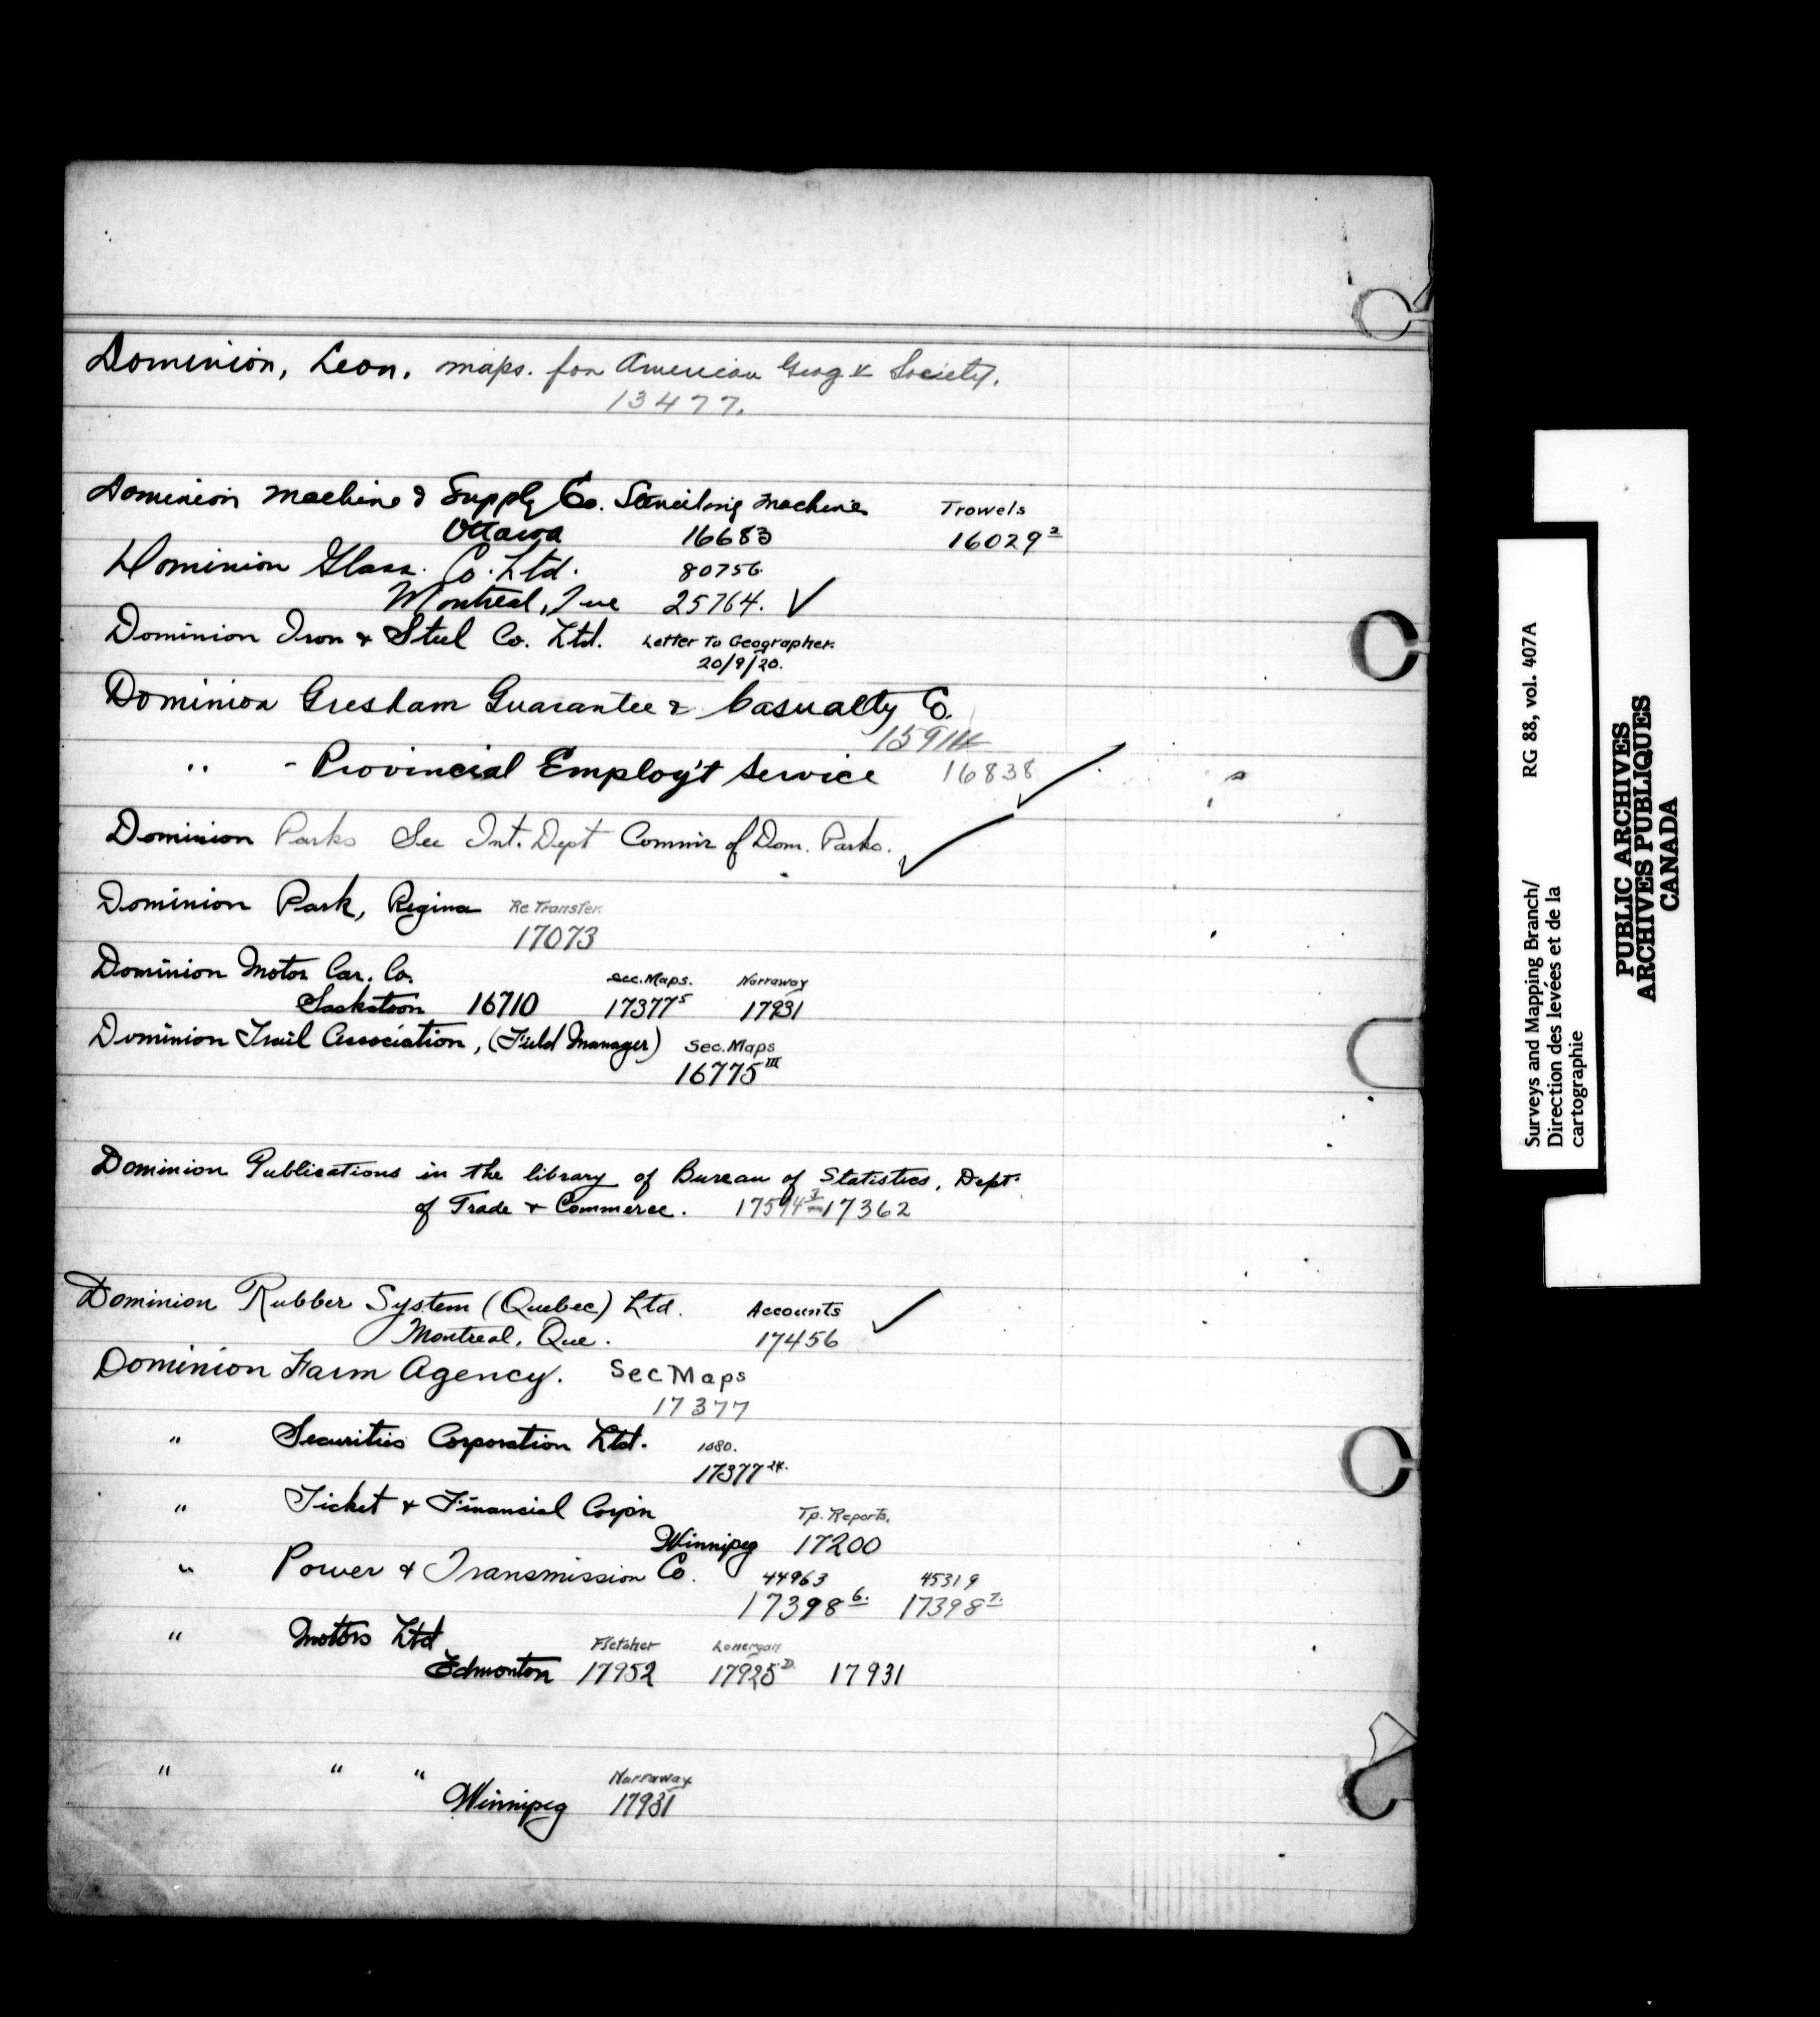 Dominion, Leon. maps. for American Geog'l Society.
13477.
Dominion Machine & Supply Co. Stenciling Machine Trowels
Ottawa 16683 16029²
Dominion Glass. Co. Ltd. 80756.
Montreal, Que 25764. ✓
Dominion Iron & Steel Co. Ltd. Letter to Geographer.
20/9/20.
Dominion Gresham Guarantee & Casualty Co.
15914
" - Provincial Employ't Service 16838 ✓
Dominion Parks See Int. Dept Commr of Dom. Parks. ✓
Dominion Park, Regina Re Transfer.
17073
Dominion Motor Car. Co. Sec. Maps. Narraway
Saskatoon 16710 17377⁵ 17931
Dominion Trail Association, (Field Manager) Sec. Maps
16775ᴵᴵᴵ
Dominion Publications in the library of Bureau of Statistics, Dept.
of Trade & Commerce. 17594³ 17362
Dominion Rubber System (Quebec) Ltd. Accounts ✓
Montreal, Que. 17456
Dominion Farm Agency. Sec Maps
17377
" Securities Corporation Ltd. 1080.
17377²⁴·
" Ticket & Financial Corp'n Tp. Reports.
Winnipeg 17200
" Power & Transmission Co. 44963 45319
17398⁶· 17398⁷·
" Motors Ltd Fletcher Lonergan
Edmonton 17952 17925ᴰ· 17931
" " " Narraway
Winnipeg 17931
Surveys and Mapping Branch/ RG 88, vol. 407A
Direction des levées et de la
cartographie
PUBLIC ARCHIVES
ARCHIVES PUBLIQUES
CANADA